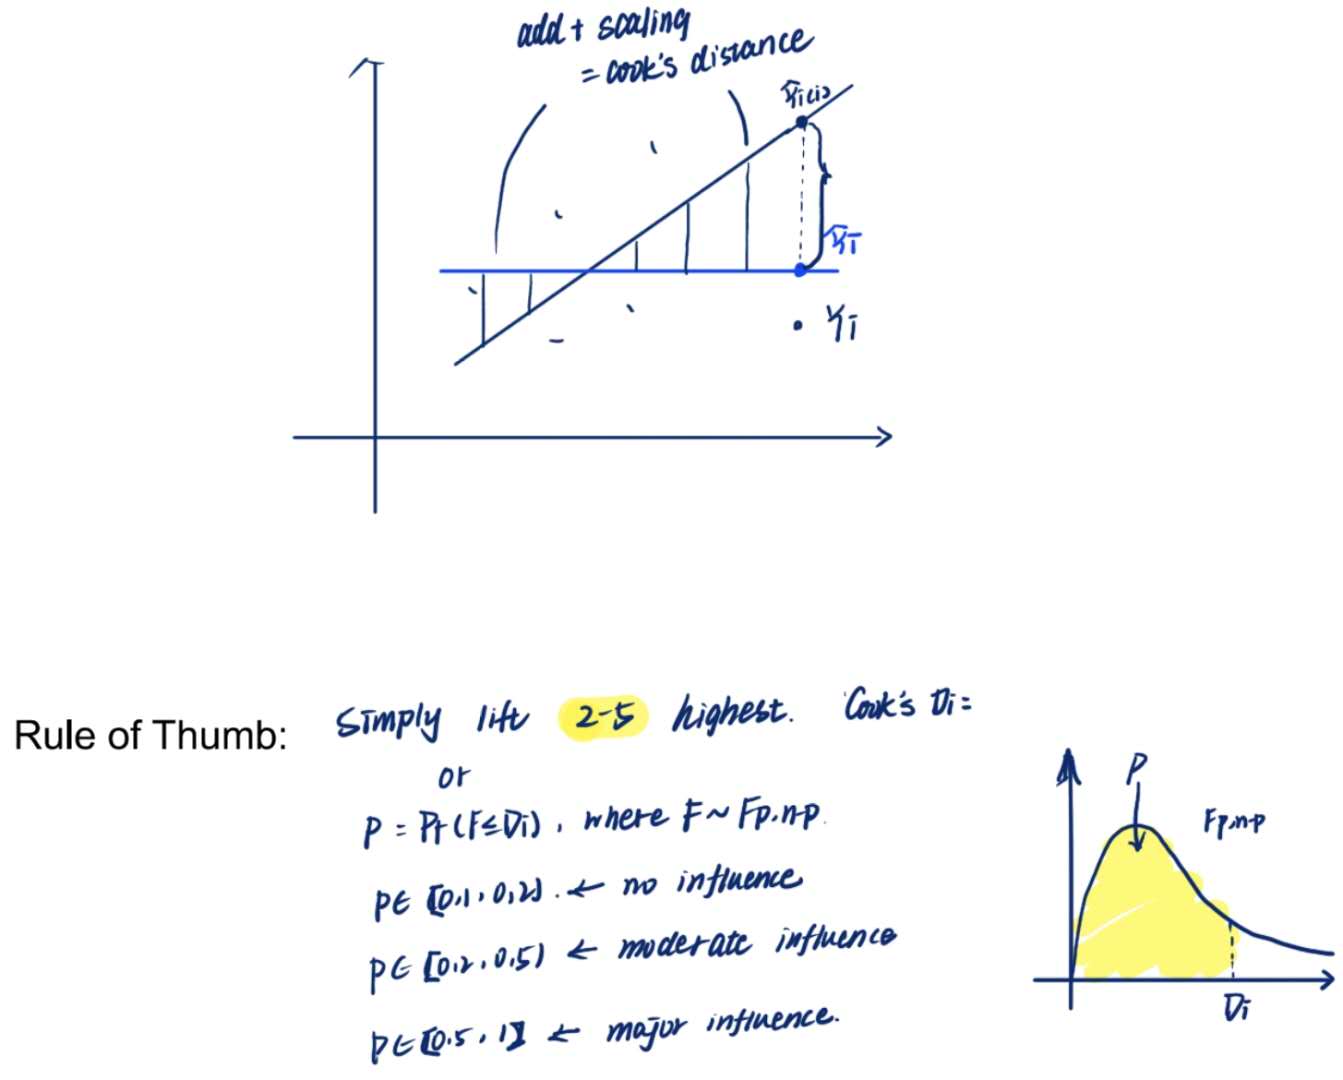 add + scaling
= cook's distance
Ŷi(i)
Ŷi
Yi
Rule of Thumb: Simply lift 2-5 highest. Cook's Di =
or
P = Pr(F≤Di), where F ~ Fp,n-p.
P∈ [0.1, 0.2). ← no influence
P∈ [0.2, 0.5) ← moderate influence
P∈ [0.5, 1] ← major influence.
P
Fp,n-p
Di